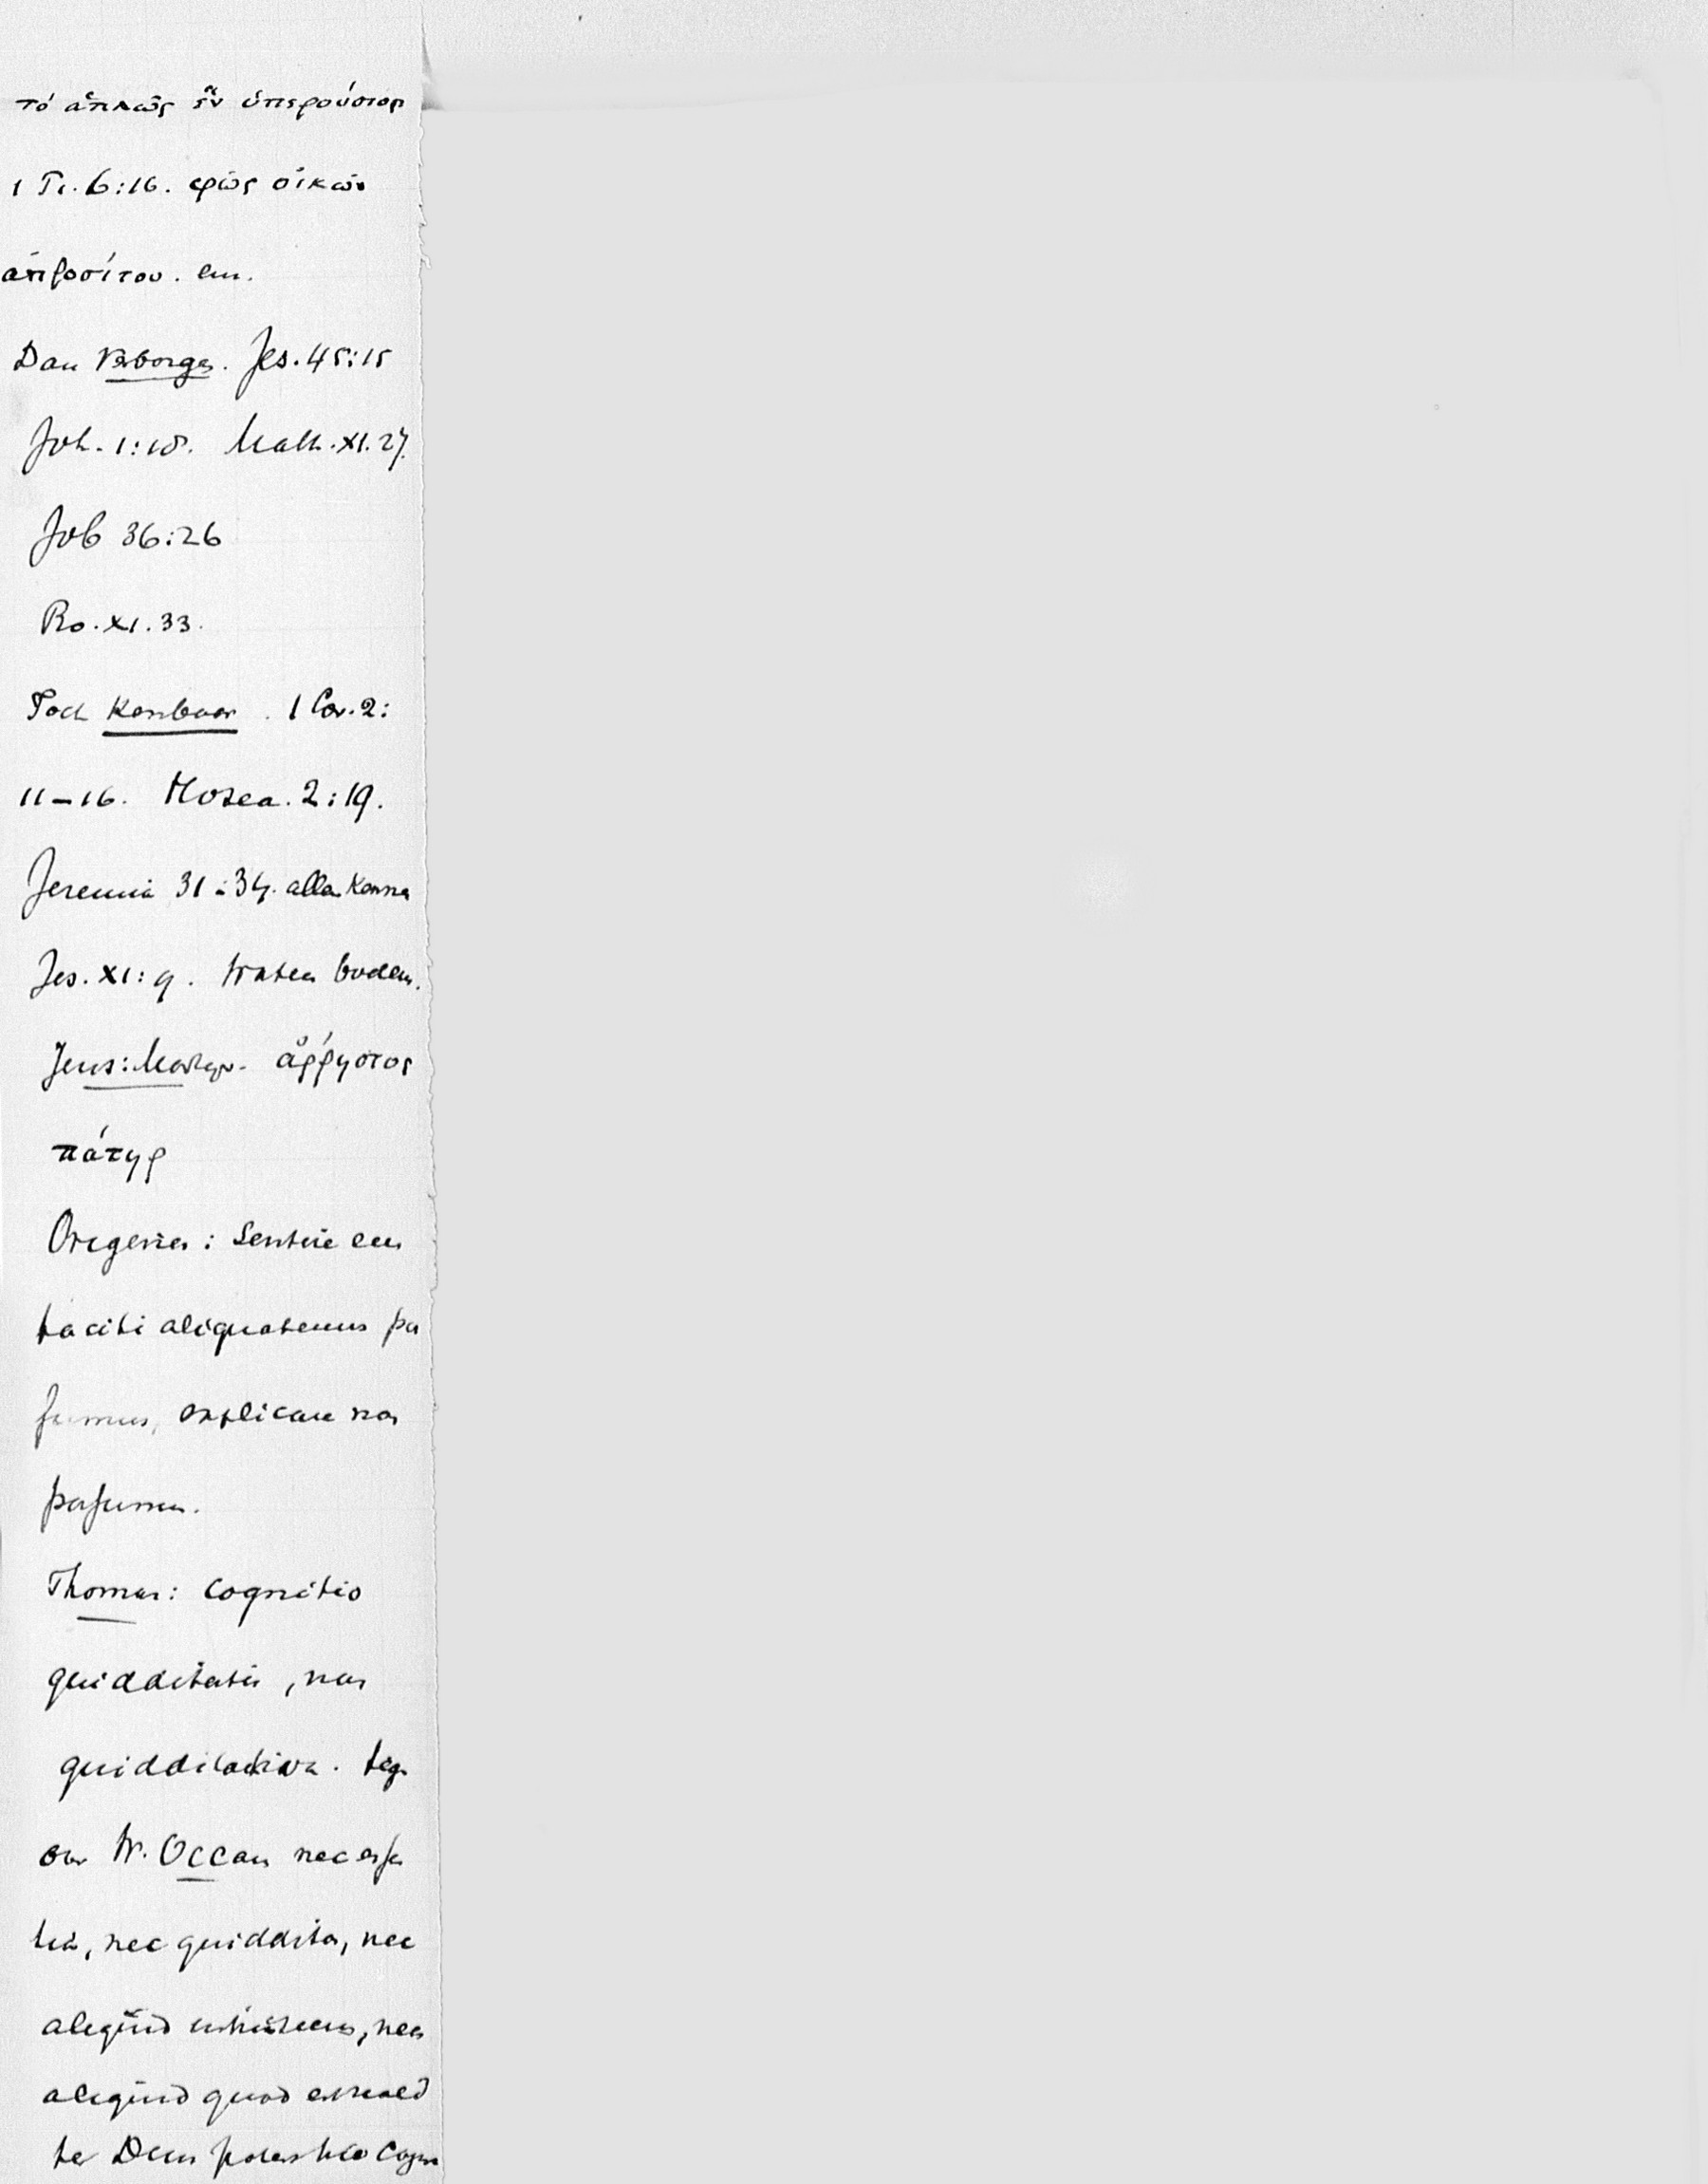 τό ἁπλῶς ἕν ὑπερούσιος
1 Ti. 6:16. φῶς οἰκῶν
ἀπρόσίτου.
Den Verborgen. Jes. 45:15
Joh. 1:18. Math. XI. 27.
Job 36:26
Ro. XI. 33.
Toch kenbaar. 1 Cor. 2:
11-16. Hosea. 2:19.
Jeremia 31:34. allen kennen
Jes. XI:9. water bodem.
Jus: Martyr. ἄρρηστος
πάτηρ
Origenes: Sentire eum
taciti aliquatenus po
ssumus, explicare non
possumus.
Thomas: Cognitio
quidditatis, non
quidditativa.
W. Occam nec essen
tia, nec quidditas, nec
aliquid intrinsecus, nec
aliquid quod est reali
ter Deus potest hic cogno